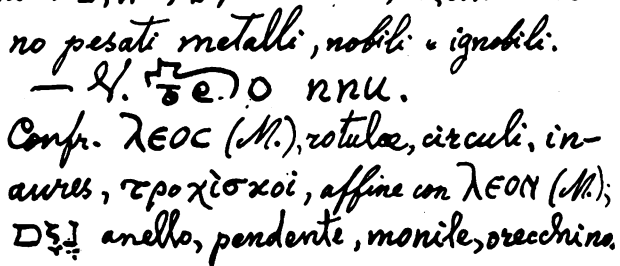 no pesati metalli, nobili e ignobili.
— V.
Confr. ⲗⲉⲟⲥ (M.), rotulæ, circuli, in-
aures, τροχὶσκοι, affine con ⲗⲉⲟⲛ (M.);
נֶזֶם anello, pendente, monile, orecchino.